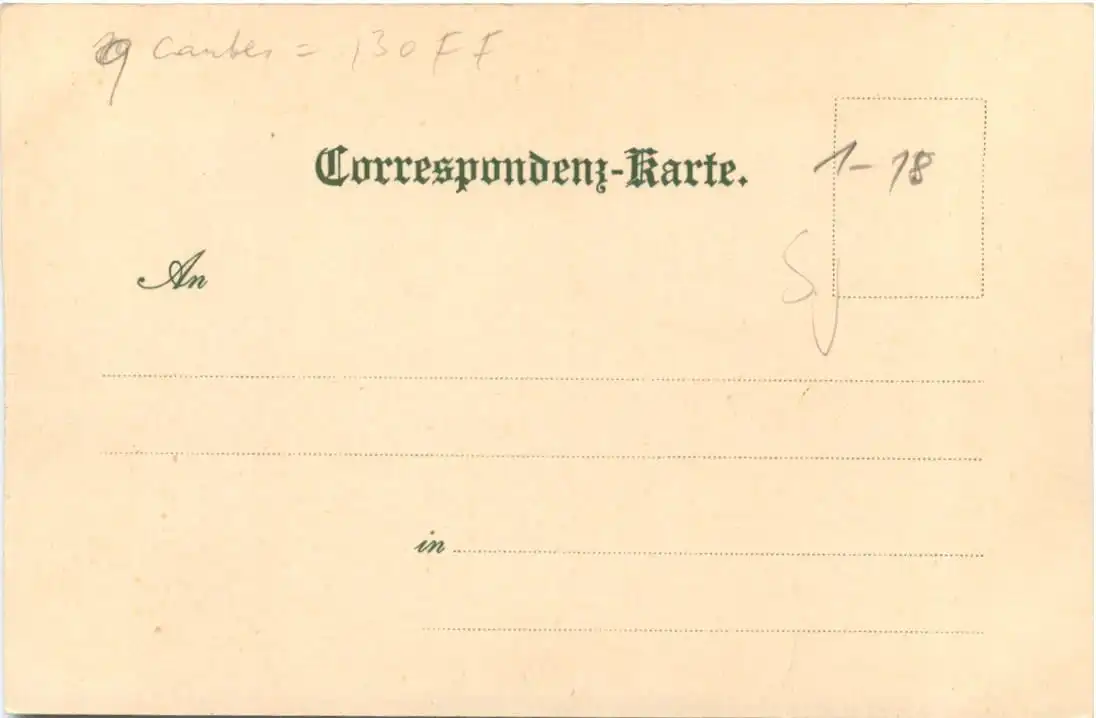 9 cartes = 130 FF
Correspondenz-Karte.
1-18
An
SJ
in